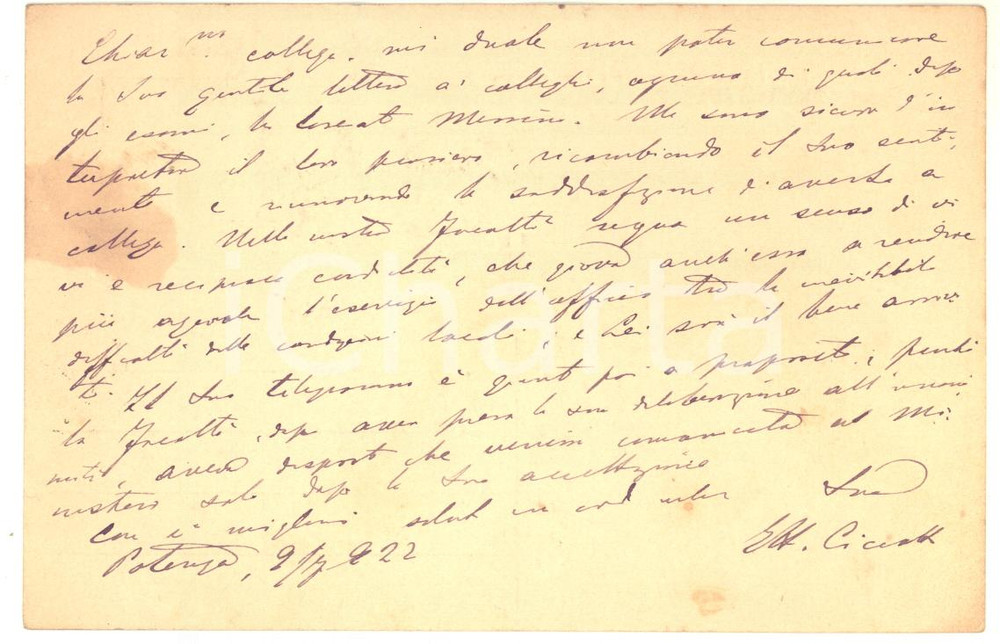 Chiar.mo collega, mi duole non poter comunicare
la Sua gentile lettera ai colleghi, ognuno di quali dopo
gli esami, ha lasciato Messina. Ma sono sicuro d'in
terpretare il loro pensiero, ricambiando il Suo senti,
mento e rinnovando la soddisfazione d'averla a
collega. Nella nostra Facoltà regna un senso di vi
va e reciproca cordialità, che giova anch'essa a rendere
più agevole l'esercizio dell'ufficio tra le inevitabili
difficoltà delle condizioni locali; e Lei sarà il bene arriva
to. Il Suo telegramma è giunto poi a proposito; perché
la Facoltà, dopo aver preso la sua deliberazione all'unani
mità, aveva disposto che venisse comunicata al Mi.
nistero solo dopo la Sua accettazione
Con i migliori saluti
Suo
Potenza, 922
Ett. Ciccotti
iCharta